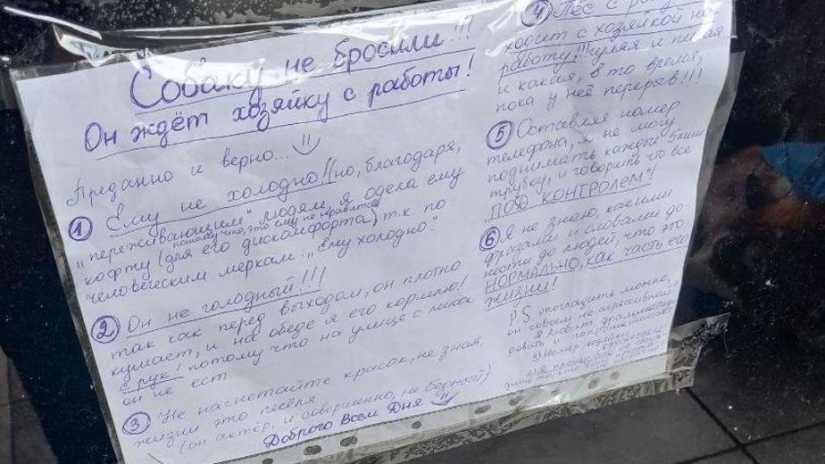 Собаку не бросили!!!
Он ждёт хозяйку с работы!
Преданно и верно...
① Ему не холодно!! но, благодаря,
"переживающим" людям, я одела ему
потому что, это ему не нравится
кофту (для его дискомфорта) т.к. по
человеческим меркам: "Ему холодно."
② Он не голодный!!!
так как перед выходом, он плотно
кушает, и на обеде я его кормлю!
с рук! потому что на улице с миски
он не ест
③ Не нагнетайте красок, не зная,
жизни это пёселя
(он актёр, и совершенно, не бедный)
Доброго Всем Дня
④ Пёс с
ходит с хозяйкой на
работу!!! гуляя и писая
и какая, в то время,
пока у неё перерыв!!!
⑤ Оставляя номер
телефона, я не могу
поднимать каждые 5мин
трубку, и говорить что всё
"ПОД КОНТРОЛЕМ"!
⑥ Я не знаю, какими
фразами и словами до-
нести до людей, что это
НОРМАЛЬНО, как часть его
жизни!
P.S угощать можно,
он совсем не агрессивный,